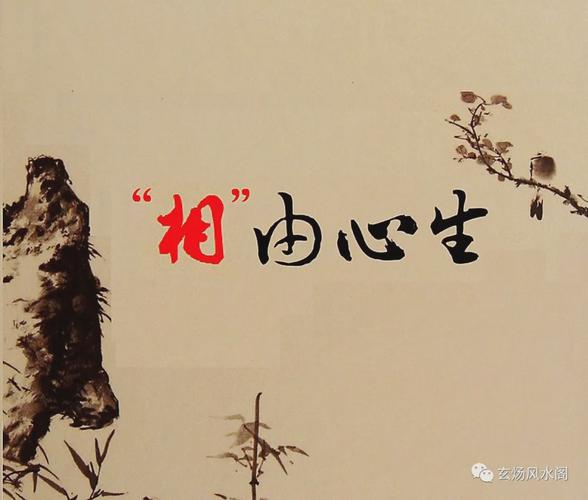 “相”由心生
玄炀风水阁